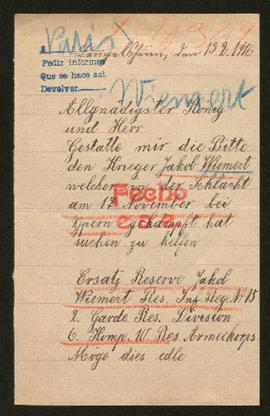 Paris
Langelsheim, den 13.2.1916
Pedir informes
Que se hace asi
Devolver
Wiemert
Allgnädigster König
und Herr
Gestatte mir die Bitte
den Krieger Jakob Wiemert
welcher in der Schlacht
am 17 November bei
Fecho
Ypern gekämpft hat
suchen zu helfen
Ersatz Reserve Jakob
Wiemert Res. Inf. Reg. No 15
2. Garde Res. Division
6. Komp. Res. Armeekorps
Möge dies edle